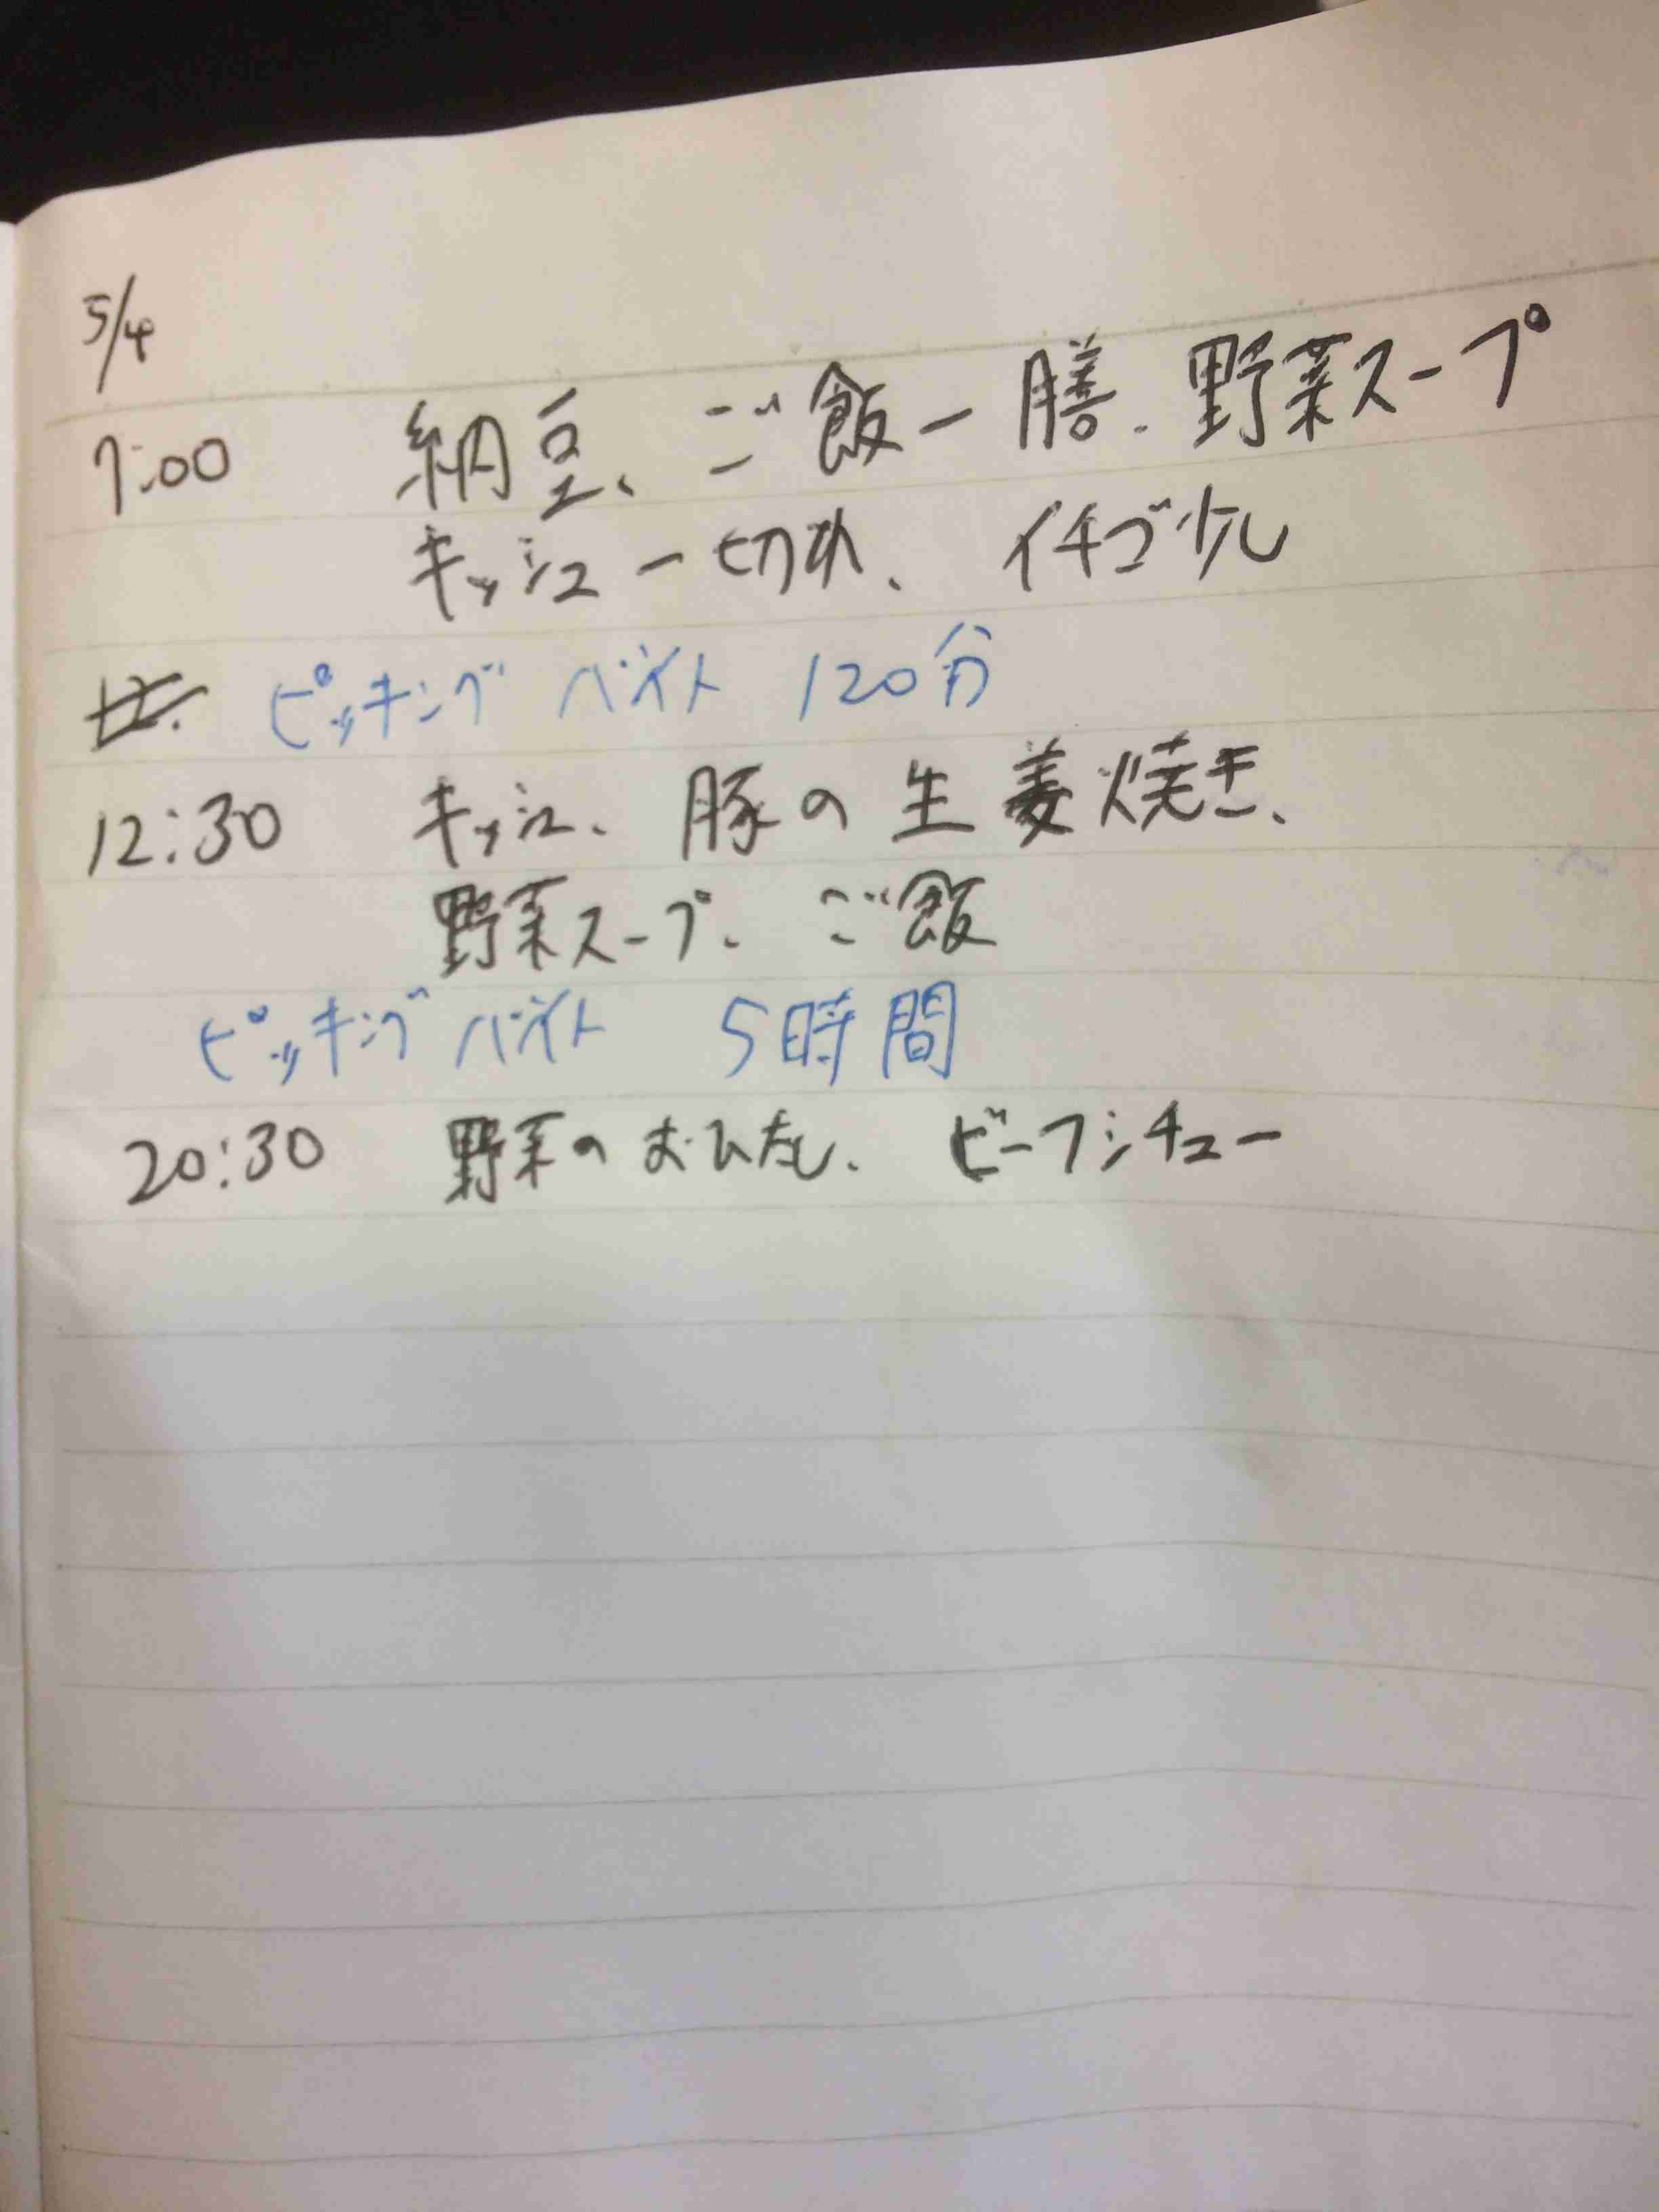 5/4
7:00 納豆、ご飯一膳、野菜スープ
キッシュ一切れ、イチゴ少し
ピッキングバイト 120分
12:30 キッシュ、豚の生姜焼き、
野菜スープ、ご飯
ピッキングバイト 5時間
20:30 野菜のおひたし、ビーフシチュー